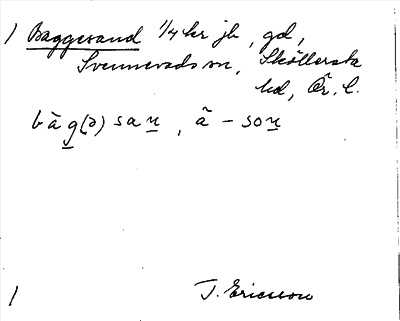 1 Baggesand 1/4 kr jb, gd,
Svennevads sn, Sköllersta
hd, Ör. l.
bàg(ə)san, ã - son
1 J. Ericsson